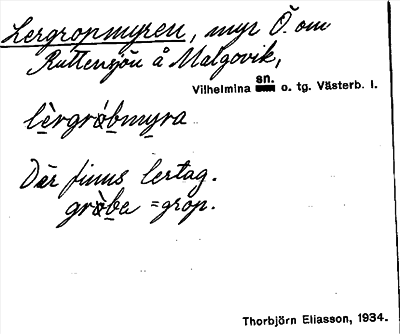 Lergropmyren, myr Ö. om
Ruttensjön å Malgovik,
Vilhelmina sn. o. tg. Västerb. l.
lèrgròbmyra
Där finns lertag.
gròbe = grop.
Thorbjörn Eliasson, 1934.